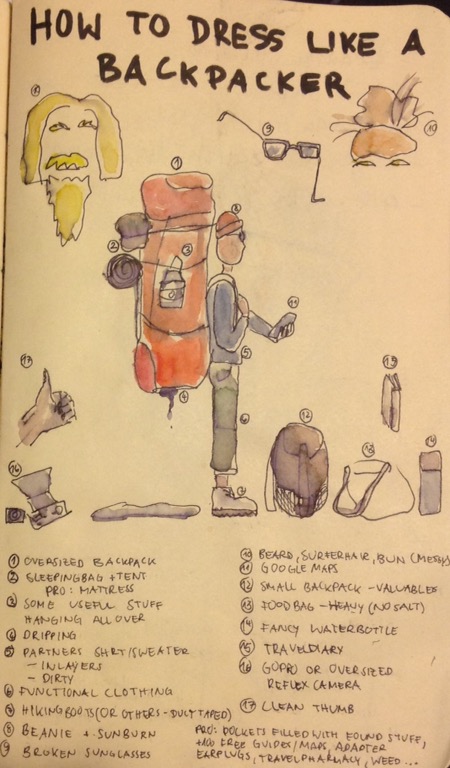 HOW TO DRESS LIKE A
BACKPACKER
① OVERSIZED BACKPACK
② SLEEPINGBAG + TENT
PRO: MATRESS
③ SOME USEFUL STUFF
HANGING ALL OVER
④ DRIPPING
⑤ PARTNERS SHIRT/SWEATER
- IN LAYERS
- DIRTY
⑥ FUNCTIONAL CLOTHING
⑦ HIKINGBOOTS (OR OTHERS - DUCTTAPED)
⑧ BEANIE + SUNBURN
⑨ BROKEN SUNGLASSES
⑩ BEARD, SURFERHAIR, BUN (MESSY)
⑪ GOOGLE MAPS
⑫ SMALL BACKPACK - VALUABLES
⑬ FOODBAG - HEAVY (NO SALT)
⑭ FANCY WATERBOTTLE
⑮ TRAVELDIARY
⑯ GOPRO OR OVERSIZED
REFLEX CAMERA
⑰ CLEAN THUMB
PRO: POCKETS FILLED WITH FOUND STUFF,
+100 FREE GUIDES/MAPS, ADAPTER
EARPLUGS, TRAVELPHARMACY, WEED...